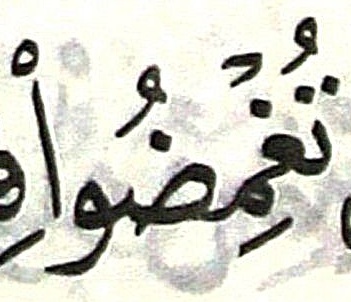 تُغْمِضُواْ